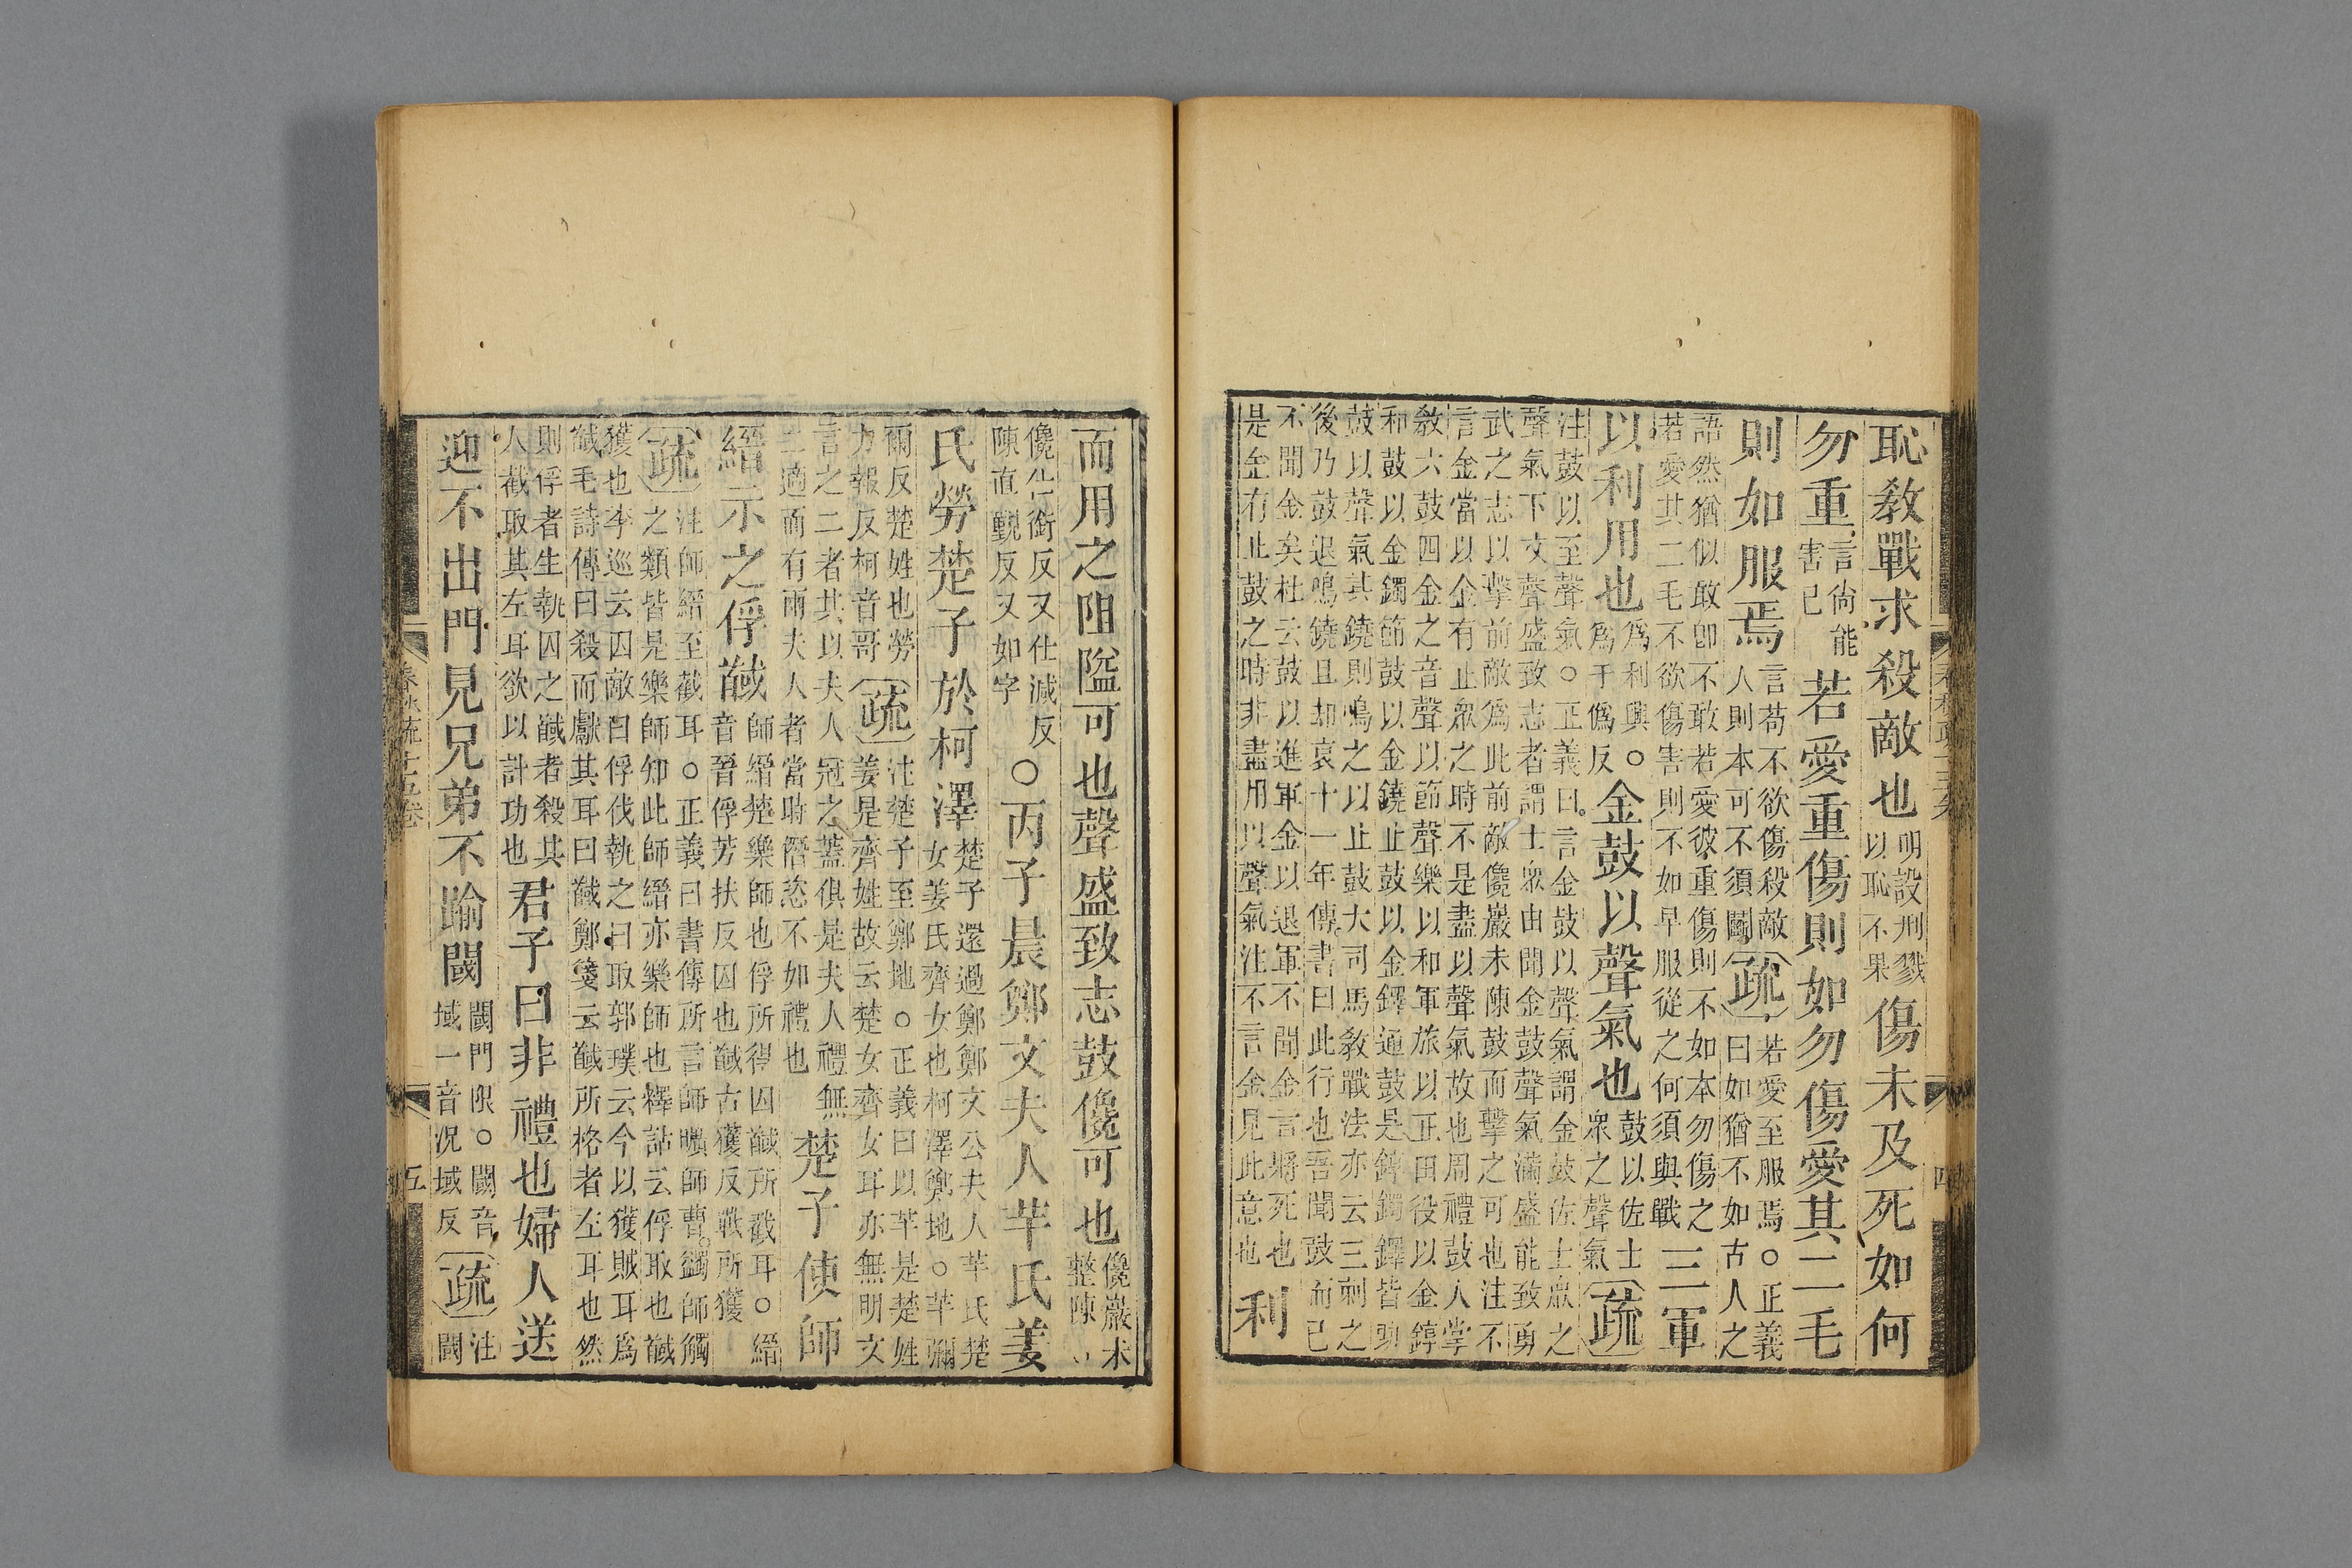 恥敎戰求殺敵也明設刑戮以恥不果傷未及死如何
勿重言尙能害己若愛重傷則如勿傷愛其二毛
則如服焉言苟不欲傷殺敵人則本可不須鬭疏若愛至服焉○正義曰如猶不如古人之
語然猶似敢卽不敢若愛彼重傷則不如本勿傷之若愛其二毛不欲傷害則不如早服從之何須與戰三軍
以利用也爲利興○爲于僞反金鼓以聲氣也鼓以佐士衆之聲氣疏
注鼓以至聲氣○正義曰言金鼓以聲氣謂金鼓佐士衆之
聲氣下文聲盛致志者謂士衆由聞金鼓聲氣滿盛能致勇
武之志以擊前敵爲此前敵儳巖未陳鼓而擊之可也注不
言金當以金有止衆之時不是盡以聲氣故也周禮鼓人掌
敎六鼓四金之音聲以節聲樂以和軍旅以正田役以金錞
和鼓以金鐲節鼓以金鐃止鼓以金鐸通鼓是錞鐲鐸皆助
鼓以聲氣其鐃則鳴之以止鼓大司馬敎戰法亦云三刺之
後乃鼓退鳴鐃且却哀十一年傳書曰此行也吾聞鼓而已
不聞金矣杜云鼓以進軍金以退軍不聞金言將死也
是金有止鼓之時非盡用以聲氣注不言金見此意也利
而用之阻隘可也聲盛致志鼓儳可也儳巖未整陳
儳仕銜反又仕減反陳直覲反又如字○丙子晨鄭文夫人羋氏姜
氏勞楚子於柯澤楚子還過鄭鄭文公夫人羋氏楚女姜氏齊女也柯澤鄭地○羋彌
爾反楚姓也勞力報反柯音哥疏注楚子至鄭地○正義曰以羋是楚姓姜是齊姓故云楚女齊女耳亦無明文
言之二者其以夫人冠之蓋俱是夫人禮無二適而有兩夫人者當時僭恣不如禮也楚子使師
縉示之俘馘師縉楚樂師也俘所得囚馘所截耳○縉音晉俘芳扶反囚也馘古獲反戰所獲
疏注師縉至截耳○正義曰書傳所言師曠師曹師蠲師觸之類皆是樂師知此師縉亦樂師也釋詁云俘取也馘
獲也李巡云囚敵曰俘伐執之曰取郭璞云今以獲賊耳爲馘毛詩傳曰殺而獻其耳曰馘鄭箋云馘所格者左耳也然
則俘者生執囚之馘者殺其人截取其左耳欲以計功也君子曰非禮也婦人送
迎不出門見兄弟不踰閾閾門限○閾音域一音況域反疏注閾
春秋疏十五卷
五
四